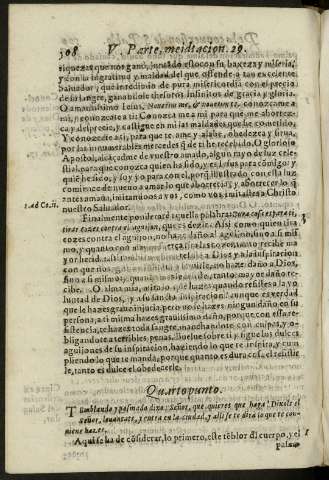 308 V. Parte, meditacion. 29.
riquezas que nos ganò, juntado esto con su baxeza y miseria,
y con la ingratitud y maldad del que ofende a tan excelente
Saluador, que le redimio de pura misericordia con el precio
de su sangre, ganandole thesoros infinitos de gracia y gloria.
O amantissimo Iesus, Nouerim me, & nouerim te. conozcame a
mi, y conozcate a ti: Conozcame a mi para que me aborrez-
ca y desprecie, y castigue en mi las maldades que he cometido,
Y conozcate a ti, para que te ame y alabe, obedezca y sirua,
por las innumerables mercedes que de ti he recebido. O glorioso
Apostol, alcaçadme de vuestro amado, algun rayo de luz celes-
tial, para que conozca quien ha sido, y es Iesus para comigo: y
quiē he sido, y soy yo para con el, porq̃ ilustrado con esta luz
comience de nueuo a amar lo que aborreci, y aborrecer lo q̃
antes amaua, imitandoos a vos, como vos imitastes a Christo
1. ad Co. 11. nuestro Saluador.
Finalmente ponderarè aquella palabra: Dura cosa es para ti,
tirar cozes contra el aguijon, que es dezir: Assi como quien tira
cozes contra el aguijon, no haze daño al aguijon, sino a si mis-
mo, y quanto con mayor fuerça tira las cozes, tanto recibe ma
yor herida: assi
con que nos
ño a si mismo: y quanto
cibe. O alma mia, mira lo que hazes quando resistes a la vo
luntad de Dios, y a su santa inspiracion: aunque es verdad
que le hazes gran injuria, pero no le hazes ningun daño en su
persona, a ti misma hazes grauissimo daño, porque con essa re-
sistencia, te hazes toda sangre, manchandote con culpas, y o-
bligandote a terribles penas. Buelue sobre ti y sigue los dulces
aguijones de su inspiracion, haziendo lo que te inspira, y cum
pliendo lo que te manda, porque quanto es dura cosa el resistir
le, tanto es dulce el obedecerle.
Quarto punto.
Temblando y pasmado dixo: Señor, que quieres que haga? Dixole el
Señor, leuantate, y entra en la ciudad, y alli se te dira lo que te con-
uiene hazer.
Aqui se ha de cōsiderar, lo primero, este tēblor del cuerpo, y el
pasmo